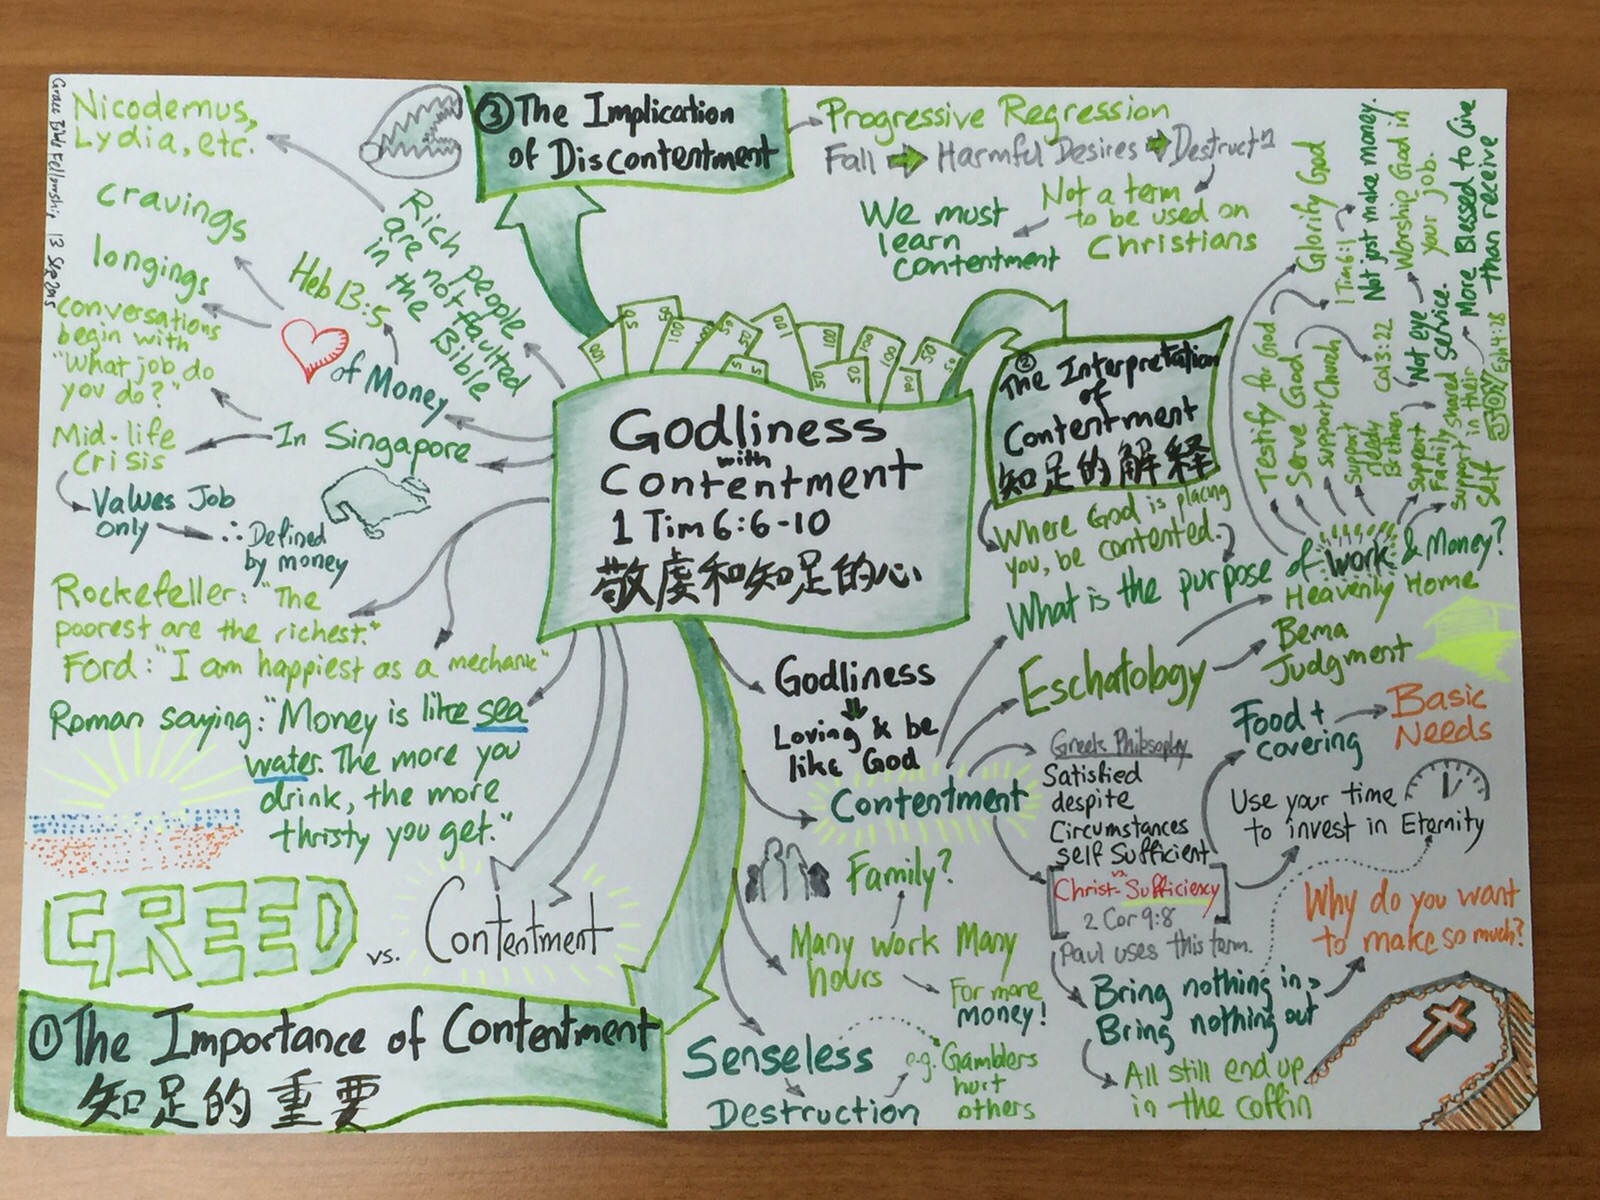 Grace Bible Fellowship 13 Sep 2015
Nicodemus,
Lydia, etc.
③ The Implication
of Discontentment
Progressive Regression
Fall → Harmful Desires → Destructn
Not a term
to be used on
Christians
We must
learn
contentment
Rich people
are not faulted
in the Bible
cravings
longings
Heb 13:5
♥ of Money
conversations
begin with
"What job do
you do?"
In Singapore
Mid-life
Crisis
Values Job
only
∴ Defined
by money
Rockefeller: "The
poorest are the richest."
Ford: "I am happiest as a mechanic"
Roman saying: "Money is like sea
water. The more you
drink, the more
thristy you get."
GREED vs. Contentment
① The Importance of Contentment
知足的重要
100
50
100
5
50
100
5
50
100
50
100
50
Godliness
with
Contentment
1 Tim 6:6-10
敬虔和知足的心
② The Interpretation
of
Contentment
知足的解释
Where God is placing
you, be contented.
What is the purpose of work & Money?
Testify for God
Glorify God
1 Tim 6:1
Serve God
support Church
support
needy
Brethren
Not just make money.
Worship God in
your job.
Col 3:22
Not eye
service.
Support
Family
shared
Support
Self
in their
JOY
More Blessed to Give
than receive
Eph 4:28
Godliness
Loving & be
like God
Contentment
Eschatology
Heavenly Home
Bema
Judgment
Greek Philosophy
Satisfied
despite
Circumstances
self sufficient
vs
Christ-Sufficiency
2 Cor 9:8
Paul uses this term.
Food +
covering
Basic
Needs
Use your time
to invest in Eternity
Why do you want
to make so much?
Bring nothing in,
Bring nothing out
All still end up
in the coffin
Family?
Many work Many
hours
For more
money!
Senseless
Destruction
e.g. Gamblers
hurt
others